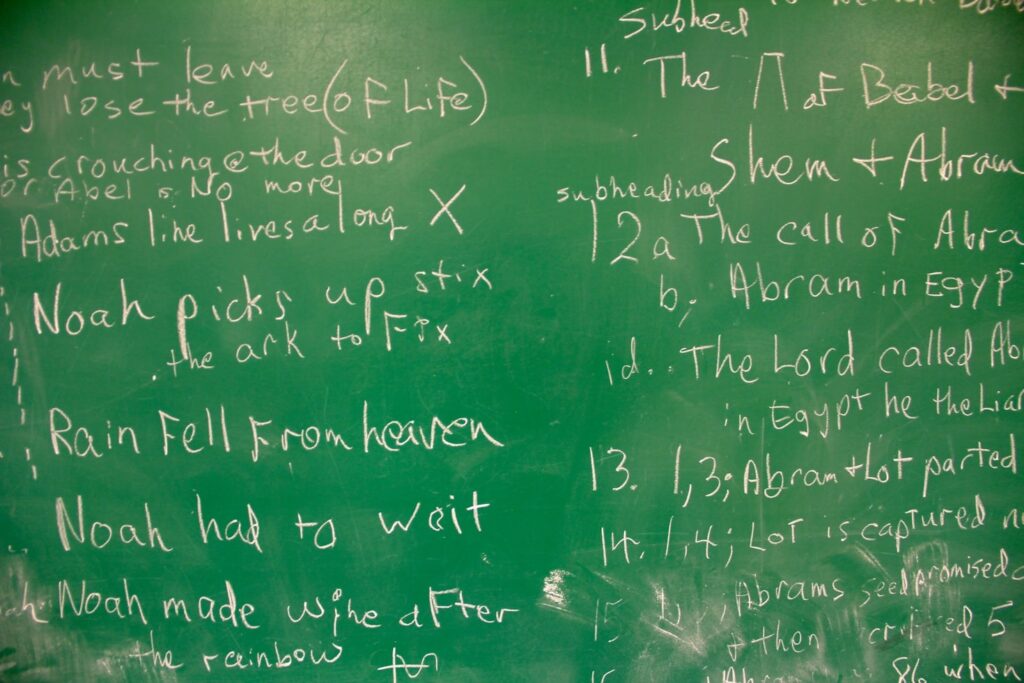 n must leave
ey lose the tree (of Life)
is crouching @ the door
or Abel is No more
Adams line lives along X
Noah picks up stix
the ark to Fix
Rain Fell From heaven
Noah had to wait
Noah made wine after
the rainbow
Subhead
11. The Π of Babel +
Shem + Abram
subheading
12a The call of Abra
b. Abram in Egyp
id.. The Lord called Ab
in Egypt he the Liar
13. 1,3; Abram + Lot parted
14. 1,4; Lot is captured n
15 Abrams seed promised
+ then 5
86 when